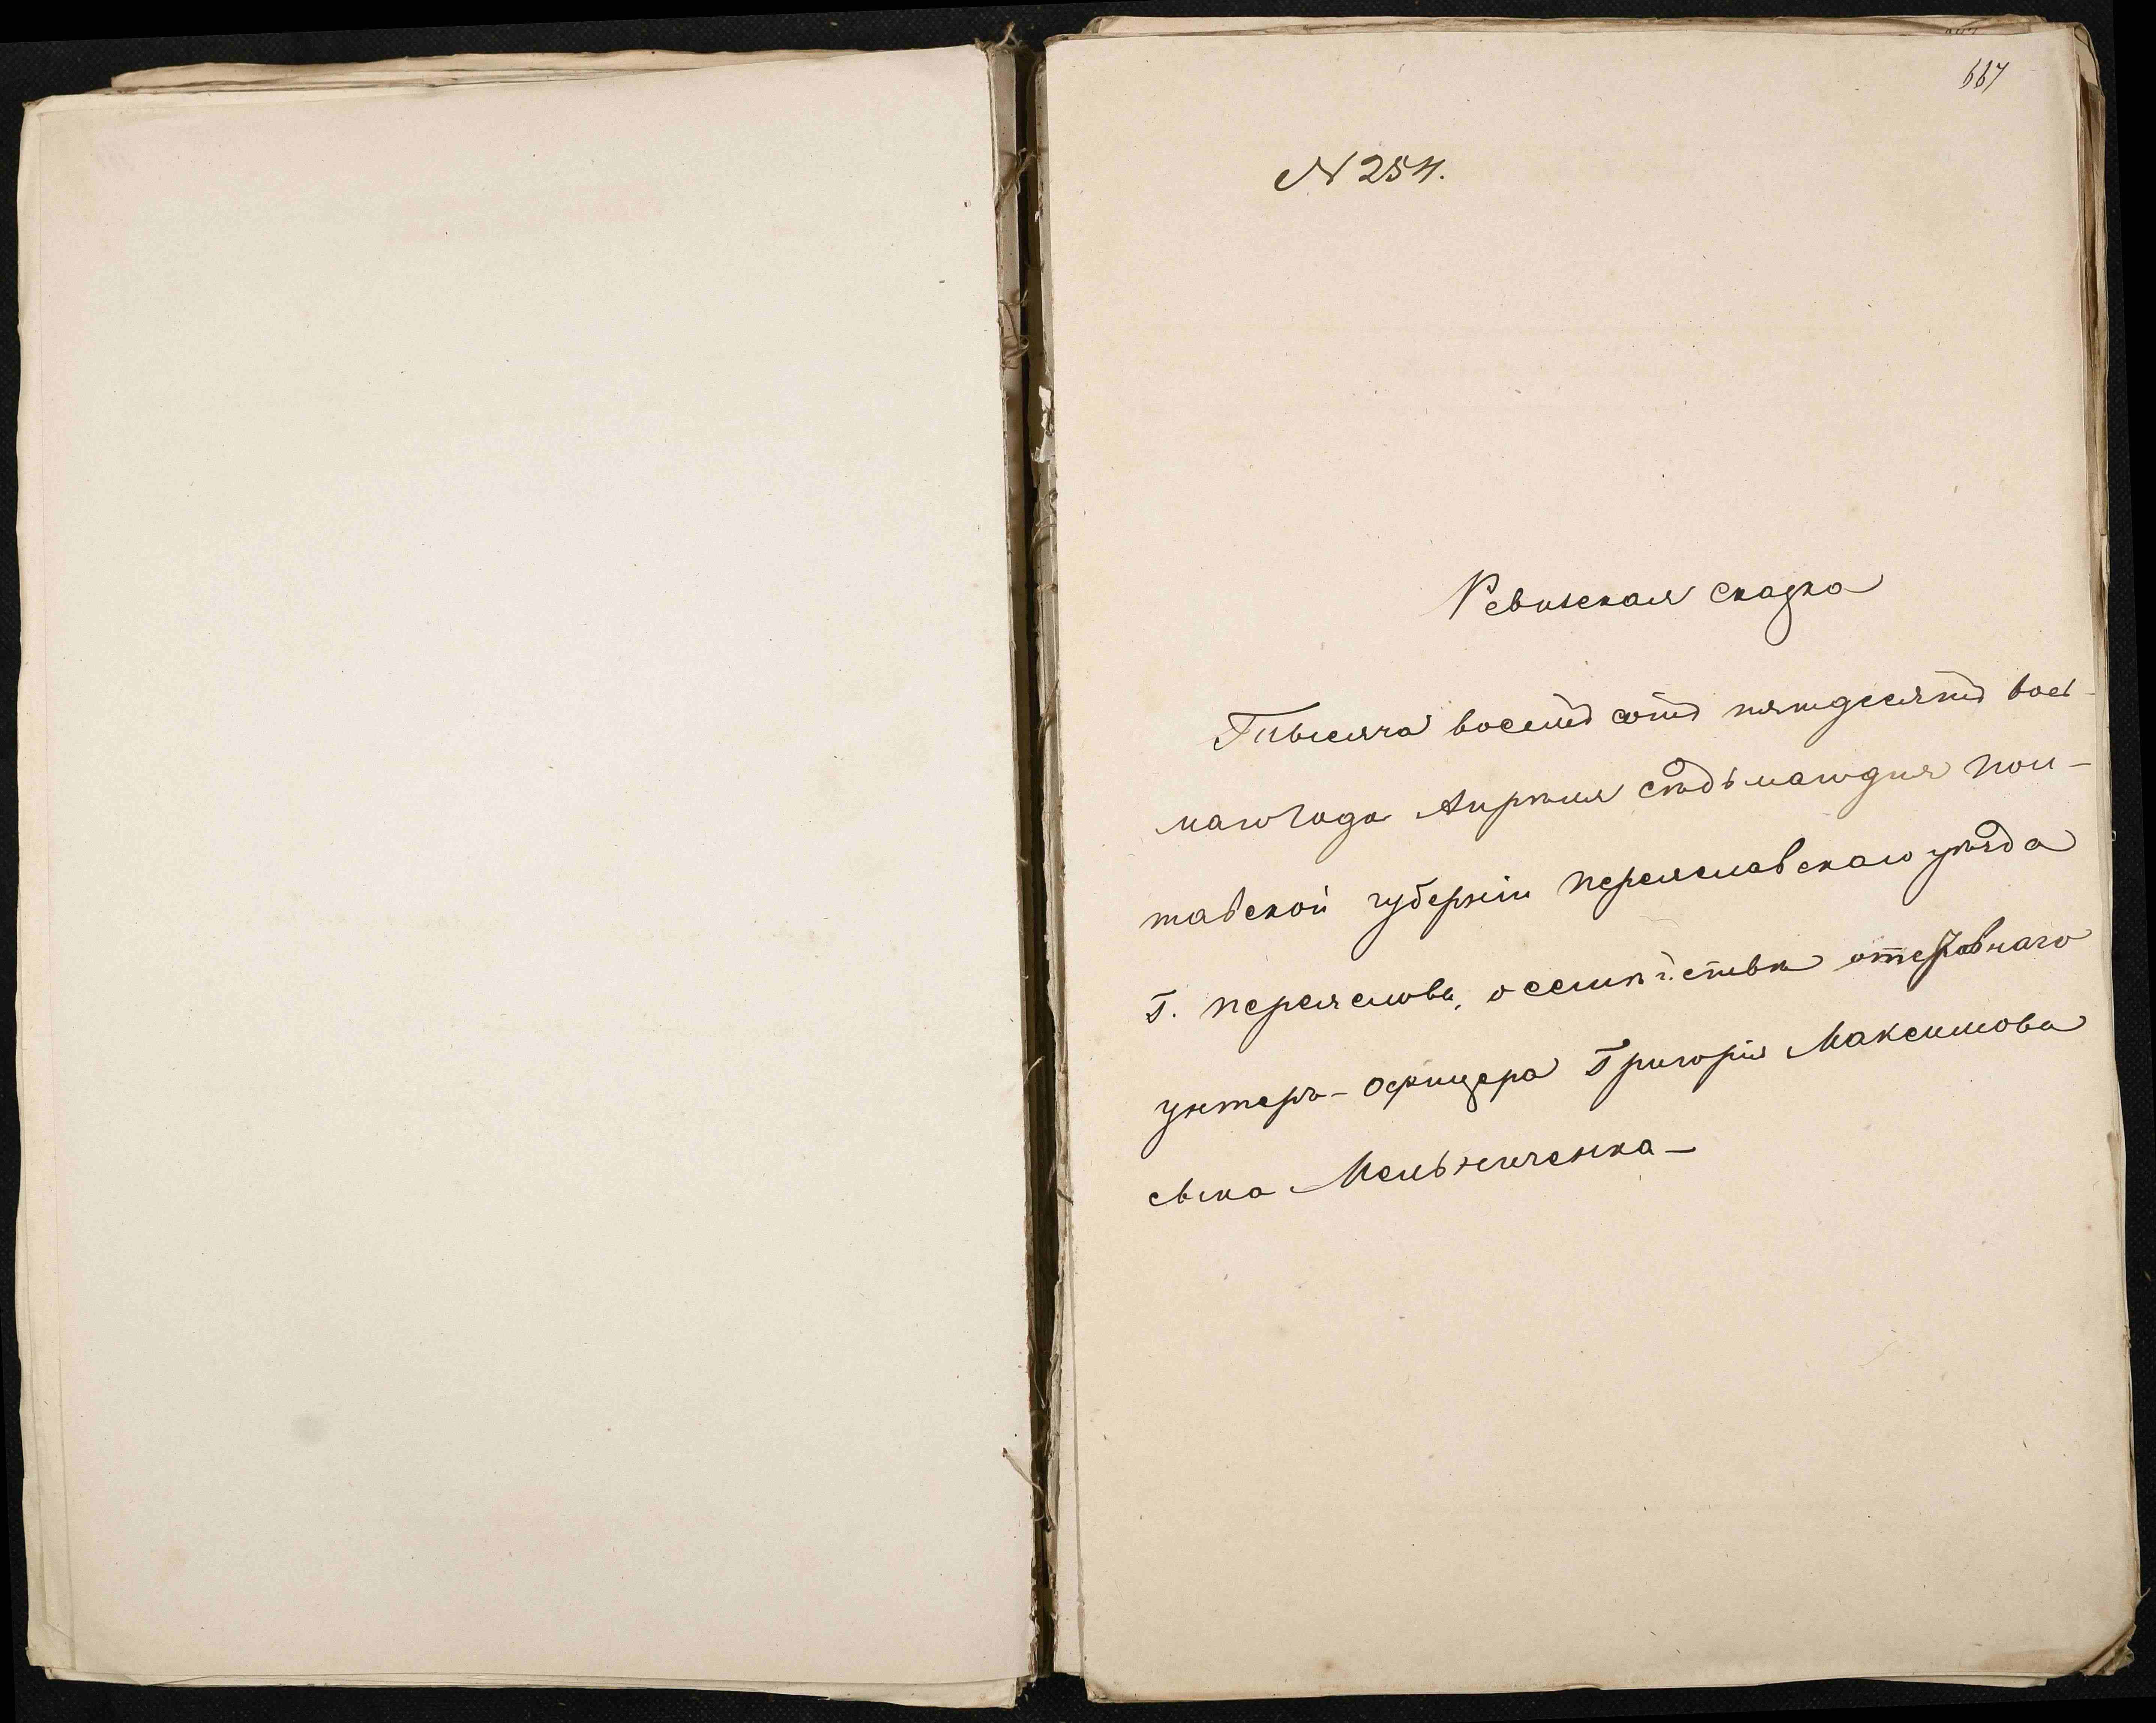 667
N 254.
Ревизская сказка
Тысяча восемъ сотъ пятдесятъ вось-
маго года Апрѣля седьмаго дня Пол-
тавской губерніи Переяславскаго уѣзда
Г. Переяслова, о семѣйствѣ отставнаго
унтеръ-офицера Григорія Максимова
сына Мельниченка-